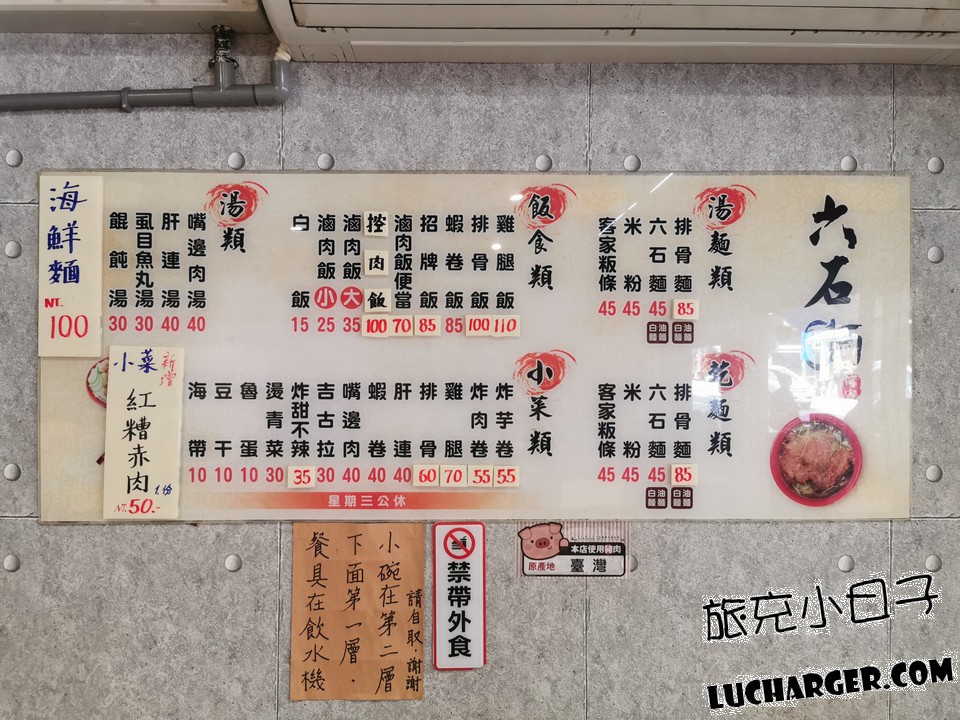 六石
湯麵類
排骨麵 85
白麵 油麵
六石麵 45
白麵 油麵
米粉 45
客家粄條 45
乾麵類
排骨麵 85
白麵 油麵
六石麵 45
白麵 油麵
米粉 45
客家粄條 45
飯食類
雞腿飯 110
排骨飯 100
蝦卷飯 85
招牌飯 85
滷肉飯便當 70
控肉飯 100
滷肉飯大 35
滷肉飯小 25
白飯 15
小菜類
炸芋卷 55
炸肉卷 55
雞腿 70
排骨 60
肝連 40
蝦卷 40
嘴邊肉 40
吉古拉 30
炸甜不辣 35
燙青菜 30
魯蛋 10
豆干 10
海帶 10
湯類
嘴邊肉湯 40
肝連湯 40
虱目魚丸湯 30
餛飩湯 30
海鮮麵
NT.
100
小菜 新增
紅糟赤肉
1份
NT. 50.-
星期三公休
請自取.謝謝
小碗在第二層
下面第一層.
餐具在飲水機
禁帶外食
本店使用豬肉
原產地 臺灣
旅充小日子
LUCHARGER.COM